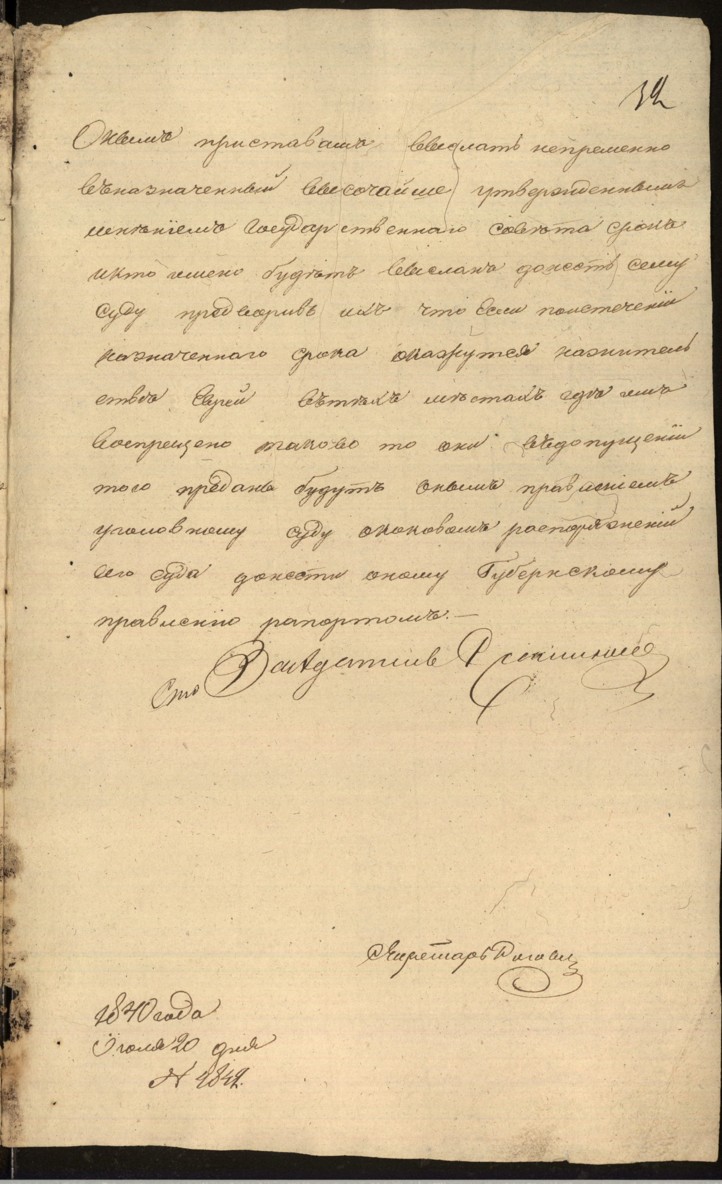 32
Онымъ приставамъ выслать непременно
въназначенный высочайше утвержденнымъ
мнѣніемъ государственнаго совѣта срокъ
икто имено будетъ высланъ донесть сему
суду предваривъ ихъ что если поистеченіи
назначеннаго срока окажутся нажитель
ствѣ Евреи вътѣхъ мѣстахъ гдѣ имъ
воспрещено таково то они въдопущеніи
того преданы будутъ онымъ правленіемъ
уголовному суду окаковомъ распоряженіи
сего суда донести оному Губернскому
правленію рапортомъ. —
Засѣдатель
Секретарь
1840 года
Іюля 20 дня
№ 4849.